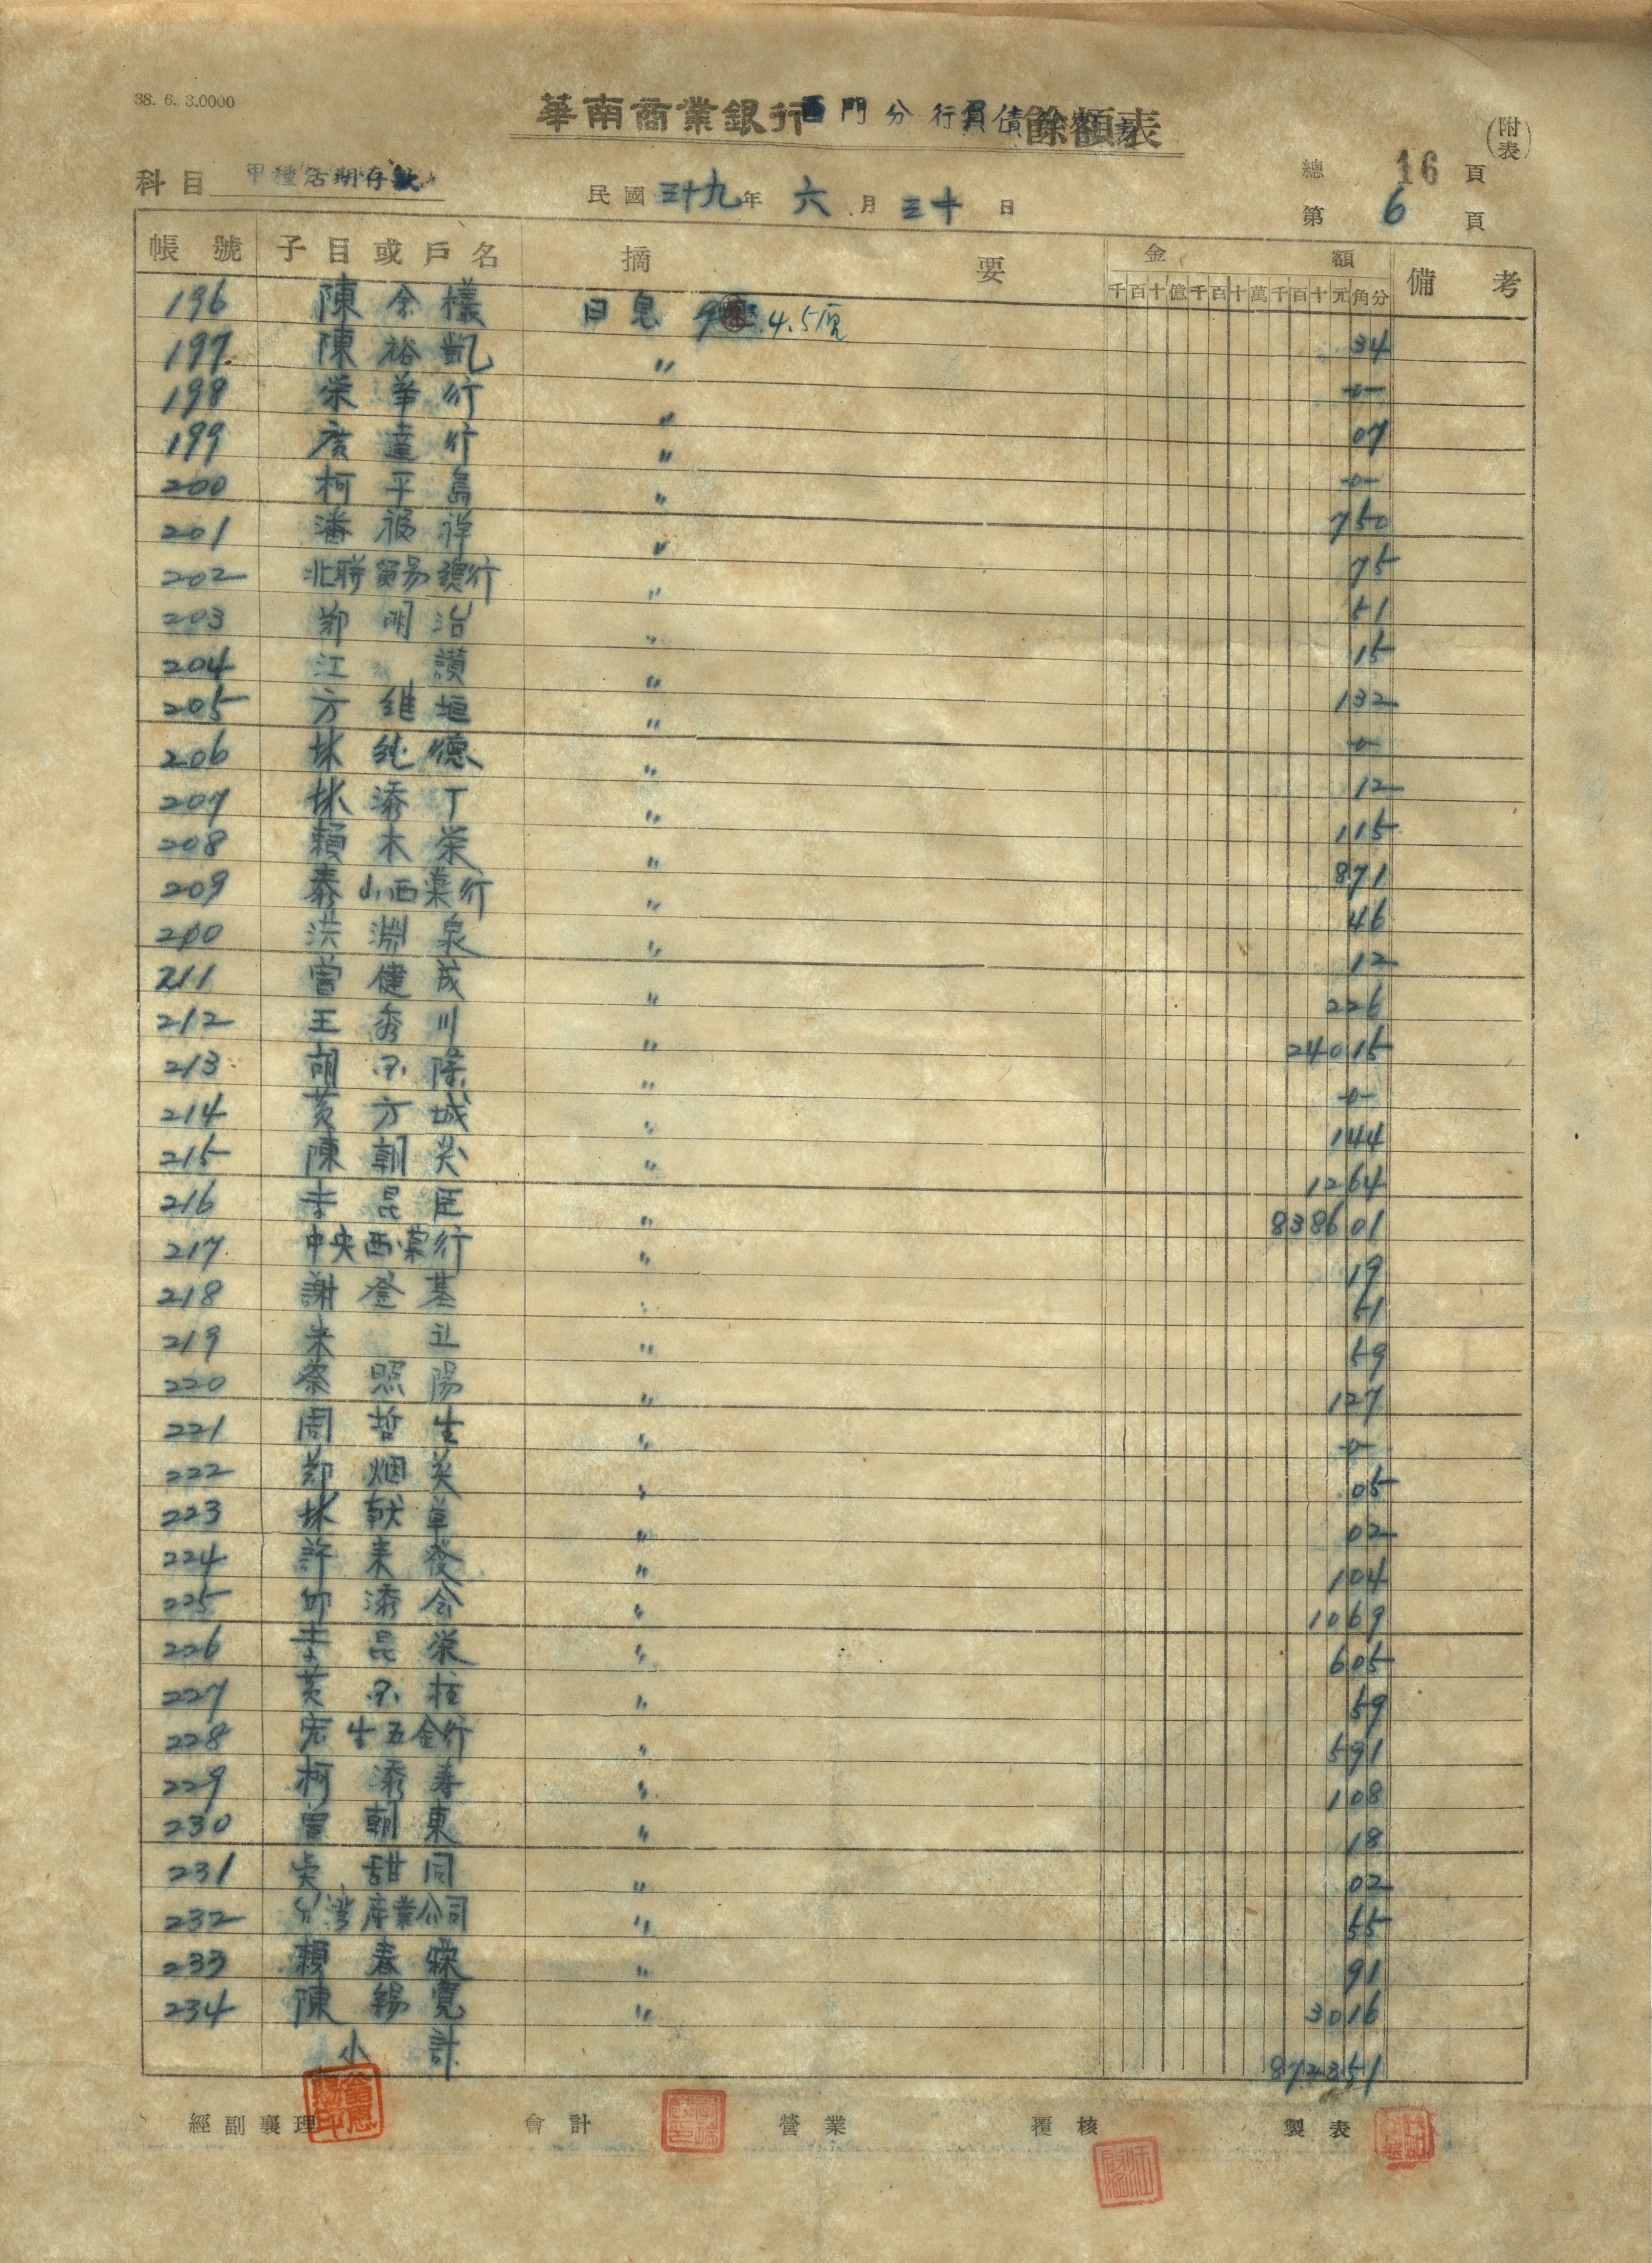 38. 6. 3.0000
華南商業銀行西門分行負債餘額表
(附表)
科目 甲種活期存款 民國三十九年六月三十日 總16頁
第6頁
帳號 子目或戶名 摘要 金額 備考
千百十億千百十萬千百十元角分
196 陳余樣 日息 4.5厘 34
197 陳裕凱 〃 -0-
198 榮華行 〃 07
199 広達行 〃 -0-
200 柯平島 〃 750
201 潘福祥 〃 75
202 北聯貿易總行 〃 51
203 鄭明治 〃 15
204 江讃 〃 132
205 方維垣 〃 -0-
206 林純德 〃 12
207 林添丁 〃 115
208 賴木榮 〃 871
209 泰山西藥行 〃 46
210 洪淵泉 〃 12
211 曾健成 〃 226
212 王秀川 〃 24015
213 胡隆 〃 -0-
214 黃方城 〃 144
215 陳朝英 〃 1264
216 李昆臣 〃 838601
217 中央西藥行 〃 19
218 謝登基 〃 51
219 朱立 〃 59
220 蔡照陽 〃 127
221 周哲生 〃 -0-
222 鄭烟英 〃 05
223 林献章 〃 02
224 許来發 〃 104
225 邱添会 〃 1069
226 李昆榮 〃 605
227 黃柱 〃 59
228 宏生五金行 〃 591
229 柯添寿 〃 108
230 曾朝東 〃 18
231 吳甜同 〃 02
232 台湾産業公司 〃 55
233 賴春 〃 91
234 陳錫寬 〃 3016
小計 872351
經副襄理 會計 營業 覆核 製表